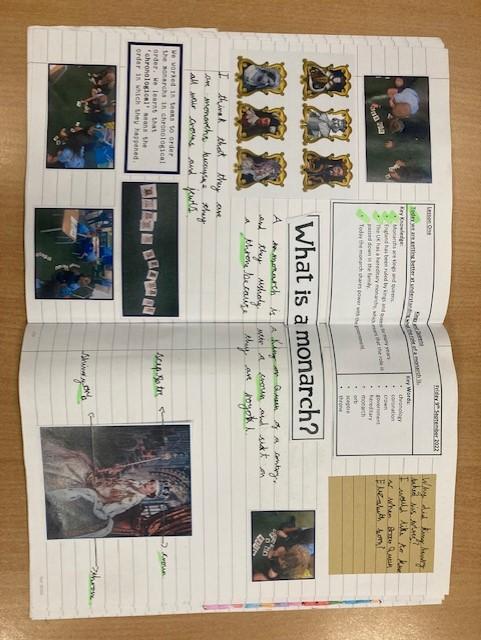 Friday 9th September 2022
Lesson One
Kings and Queens
Today we are getting better at understanding what the role of a monarch is.
Key Knowledge:
Monarchs are kings and queens.
England has been ruled by kings and queens for many years.
The UK has a hereditary monarchy, which means that the role is
passed down in the family.
Today the monarch shares power with the government.
Key Words:
chronology
coronation
crown
government
hereditary
monarch
orb
sceptre
throne
Why did King henry
I would like to know
Elizabeth born?
What is a monarch?
A monarch is a king or Queen of a contry.
and they wshaly wer a crown and sidt on
a throne because they are royal!
I think that they are
all wer crowns and
We worked in teams to order
the monarch in chronological
order. We learnt that
'chronological' means the
order in which they happened.
crown
throne